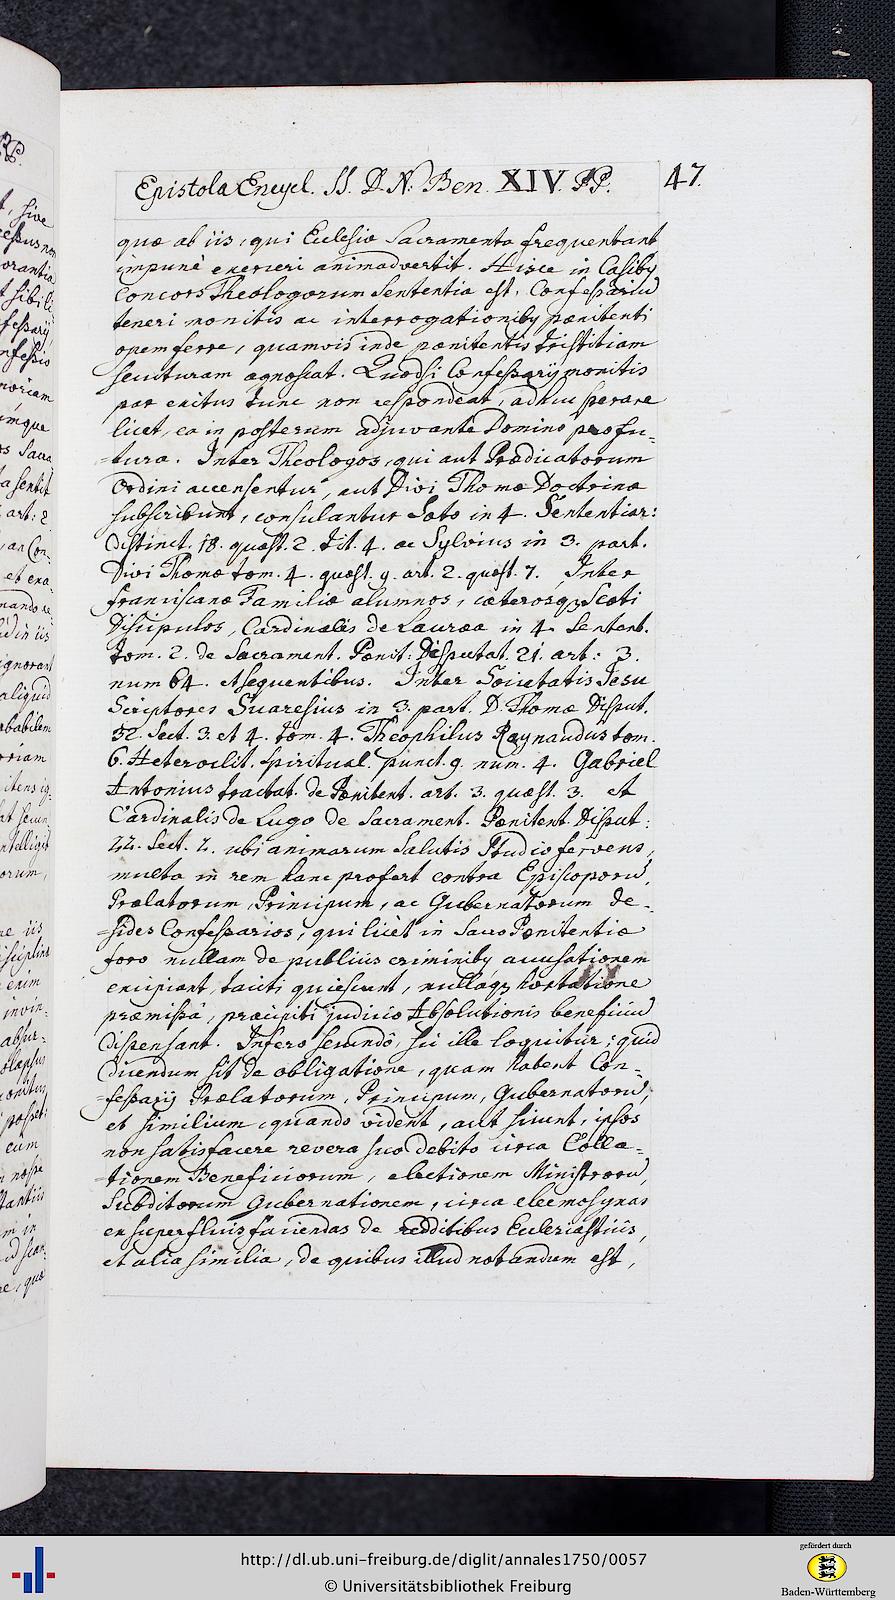 Epistola Encycl. SS. D. N. Ben. XIV. PP. 47.
quæ ab iis, qui Eclesiæ Sacramenta frequentant
impunè exerceri animadvertit. Hisce in Casibq
Concors Theologorum Sententia est, Confessariū
teneri monitis ac interrogationibq pænitenti
opem ferre, quamvis inde pænitentis tristitiam
secuturam agnoscat. Quodsi Confessarij monitis
par exitus tunc non respondeat, adhuc sperare
licet, ea in posterum adjuvante Domino profu-
-tura. Inter Theologos, qui aut Prædicatorum
Ordini accensentur, aut Divi Thomæ Doctrinæ
subscribunt, consulantur Soto in 4. Sententiar:
distinct. 18. quæst. 2. tit. 4. ac Sylvius in 3. part.
Divi Thomæ tom. 4. quæst. 9. art. 2. quæst. 7. Inter
franciscanæ Familiæ alumnos, cæterosqz Scoti
Discipulos, Cardinalis de Lauræa in 4. Sentent.
tom. 2. de Sacrament. Pænit: Disputat. 21. art: 3.
num 64. et sequentibus. Inter Societatis Jesu
Scriptores Suaresius in 3. part. D. Thomæ Disput.
32. Sect. 3. et 4. tom. 4. Theophilus Raynaudus tom.
6. Heteroclit. Spiritual. punct. 9. num. 4. Gabriel
Antonius tractat. de Pænitent. art. 3. quæst. 3. et
Cardinalis de Lugo de Sacrament. Pænitent. Disput:
22. Sect. 2. ubi animarum Salutis Studio fervens,
multa in rem hanc profert contra Episcoporū,
Prælatorum, Principum, ac Gubernatorum de-
-sides Confessarios, qui licèt in Sacro Pænitentiæ
foro nullam de publicis criminibq accusationem
excipiant, taciti quiescunt, nullaqz hortatione
præmissâ, præcipiti judicio Absolutionis beneficiū
dispensant. Infero secundò, sic ille loquitur: quid
dicendum sit de obligatione, quam habent Con-
-fessarij Prælatorum, Principum, Gubernatorū,
et similium, quando vident, aut sciunt, ipsos
non satisfacere revera suo debito circa Colla-
-tionem Beneficiorum, electionem Ministrorū,
Subditorum Gubernationem, circa eleemosynas
ex superfluis faciendas de redditibus Eclesiasticis,
et alia similia, de quibus illud notandum est,
http://dl.ub.uni-freiburg.de/diglit/annales1750/0057
© Universitätsbibliothek Freiburg
gefördert durch
Baden-Württemberg